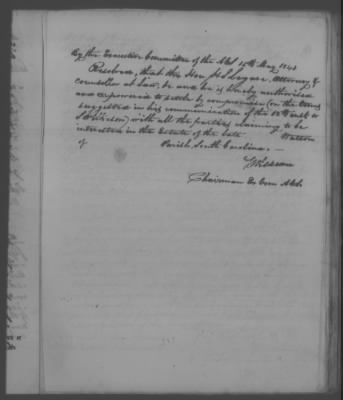 By the Executive Committee of the ACS 15th May 1840
Resolved, that the Hon. Attorney &
Counsellor at Law, be and he is hereby authorised
and empowered to settle by compromise (on the terms
suggested in his communication of the to
S Wilkeson) with all the parties claiming to be
interested in the Estate of the late Watson
of Parish, South Carolina. —
S Wilkeson
Chairman Ex Com ACS